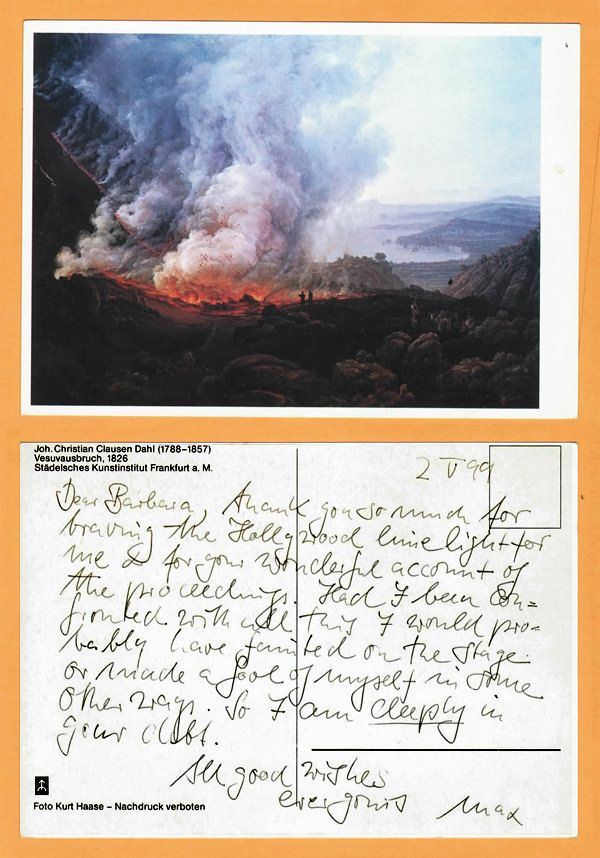 Joh. Christian Clausen Dahl (1788–1857)
Vesuvausbruch, 1826
Städelsches Kunstinstitut Frankfurt a. M.
2 V 99
Dear Barbara, thank you so much for
braving the Hollywood limelight for
me & for your wonderful account of
the proceedings. Had I been con=
fronted with all this I would pro=
bably have fainted on the stage
or made a fool of myself in some
other ways. So I am deeply in
your debt.
All good wishes
ever yours Max
Foto Kurt Haase – Nachdruck verboten